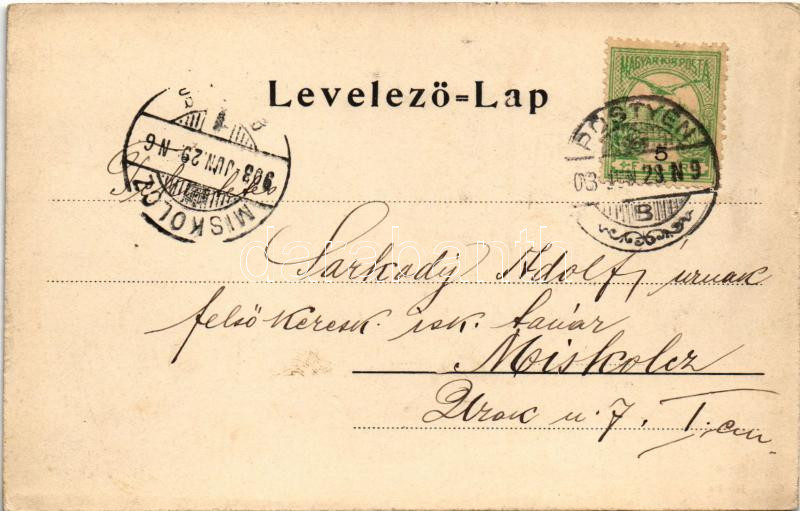 Levelező=Lap
MAGYAR KIR. POSTA
5
PÖSTYÉN
03 JUN 23 N 9
B
903 JUN. 23. N 6
MISKOLCZ
darabanth
Sarkady Adolf, úrnak
felső keresk. isk. tanár
Miskolcz
Urak u. 7. I. em.